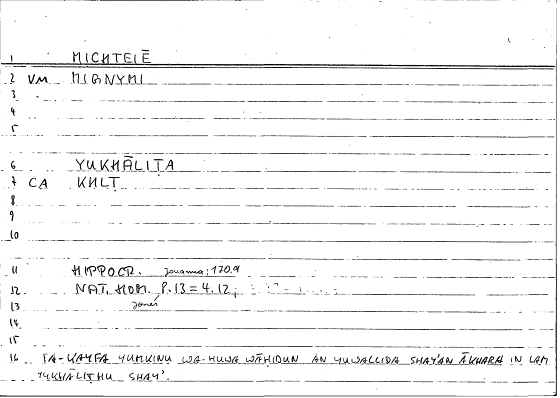 1 MICHTEIĒ
2 VM MIGNYMI
3
4
5
6 YUKHĀLIṬA
7 CA KHLṬ
8
9
10
11 HIPPOCR. Jouanna: 170.9
12 NAT. HOM. P.13 = 4.12;
13 Jones
14
15
16 FA-KAYFA YUMKINU WA-HUWA WĀḤIDUN AN YUWALLIDA SHAY'AN ĀKHARA IN LAM
YUKHĀLIṬHU SHAY'.